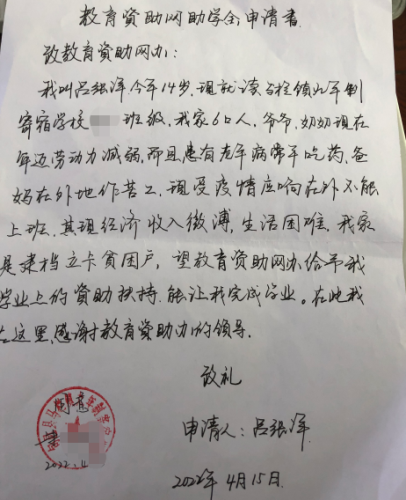 教育资助网助学金申请书
致教育资助网办：
我叫吕张洋今年14岁，现就读与程镇九年制
寄宿学校 班级，我家6口人，爷爷，奶奶现在
年迈劳动力减弱，而且患有老年病常年吃药，爸
妈在外地作苦工，现受疫情应响在外不能
上班，其现经济收入微薄，生活困难，我家
是建档立卡贫困户，望教育资助网办给予我
学业上的资助扶持，能让我完成学业。在此我
在这里，感谢教育资助办的领导。
致礼
申请人：吕张洋
2022年4月15日.
2022.4